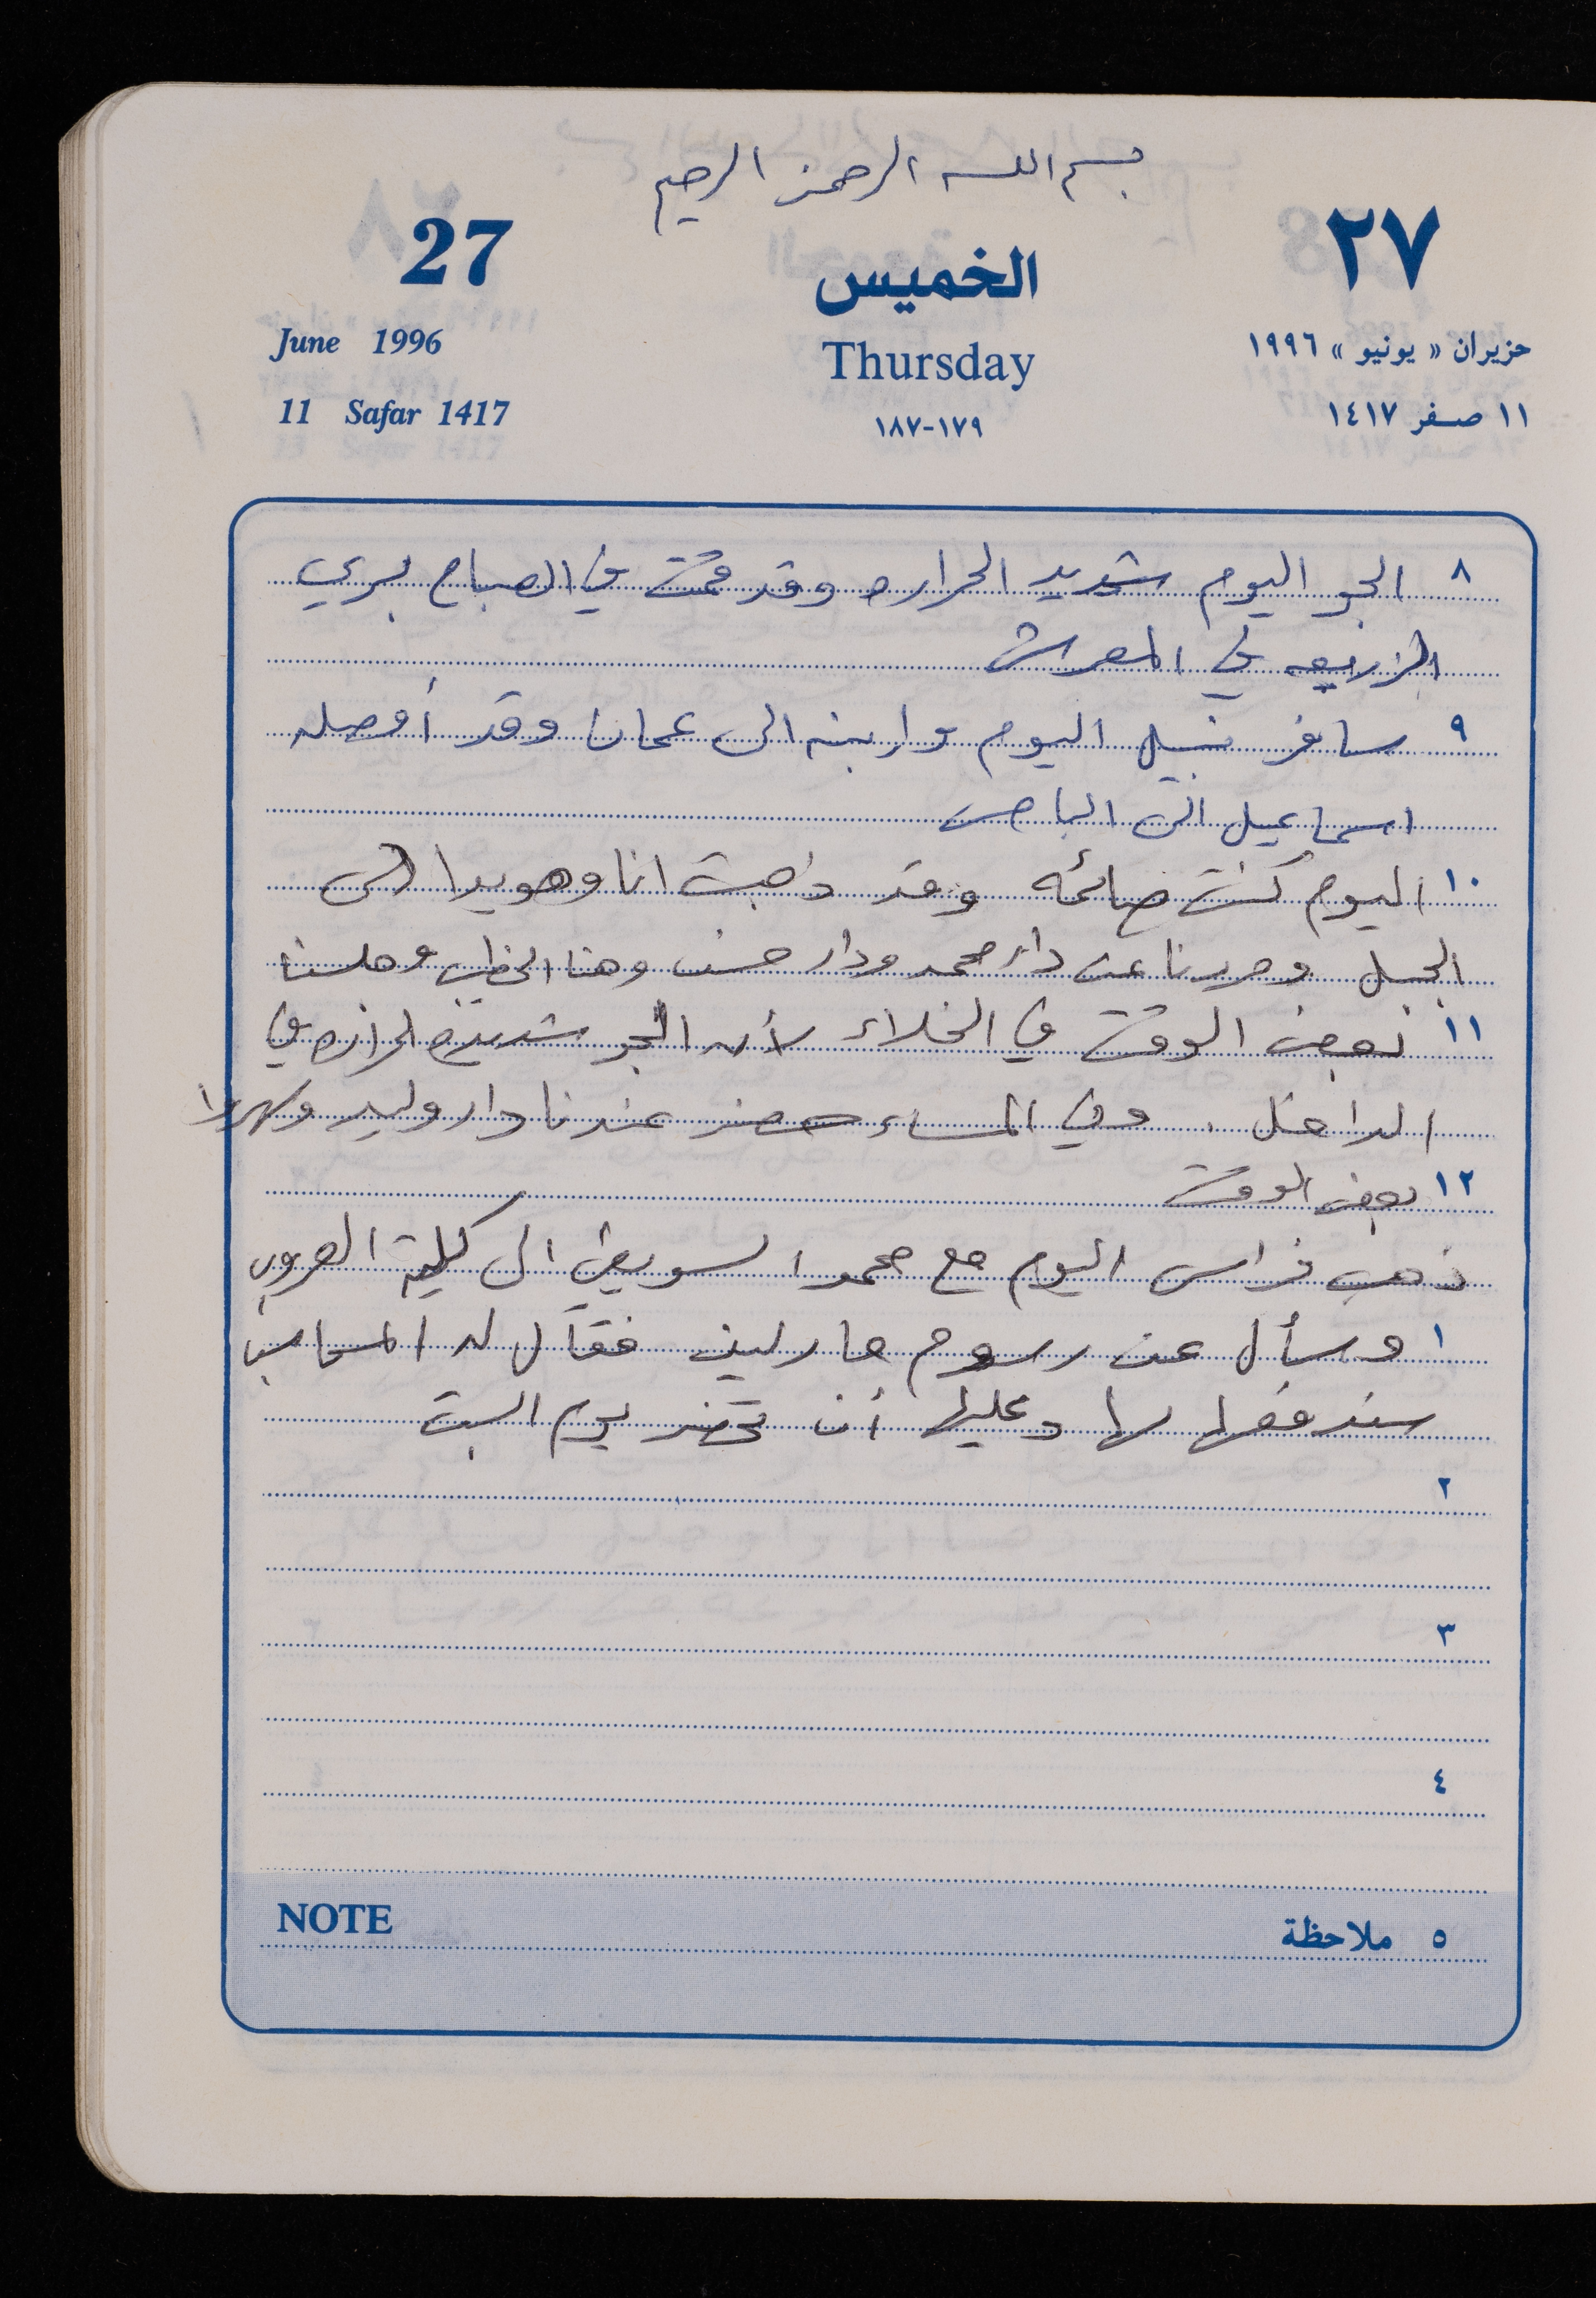 بسم الله الرحمن الرحيم
27
الخميس
٢٧
June 1996
Thursday
حزيران « يونيو » ١٩٩٦
11 Safar 1417
١٧٩-١٨٧
١١ صفر ١٤١٧
٨ الجو اليوم شديد الحراره وقد قمت في الصباح بري
الزريعه في المعرش
٩ سافر نبيل اليوم وابنه الى عمان وقد أوصله
اسماعيل الى الباص
١٠ اليوم كنت صائمه وقد ذهبت انا وهويدا الى
الجبل ومررنا عن دار محمد ودار حسن وهنا الخطيب وجلسنا
١١ بعض الوقت في الخلاء لأن الجو شديد الحراره في
الداخل . وفي المساء حضر عندنا دار وليد وسهروا
١٢ بعض الوقت
ذهب فراس اليوم مع محمد السويطي الى كلية العروب
١ وسأل عن رسوم مارلين فقال له المحاسب
سندفعها لها وعليها أن تحضر يوم السبت
٢
٣
٤
NOTE
٥ ملاحظة